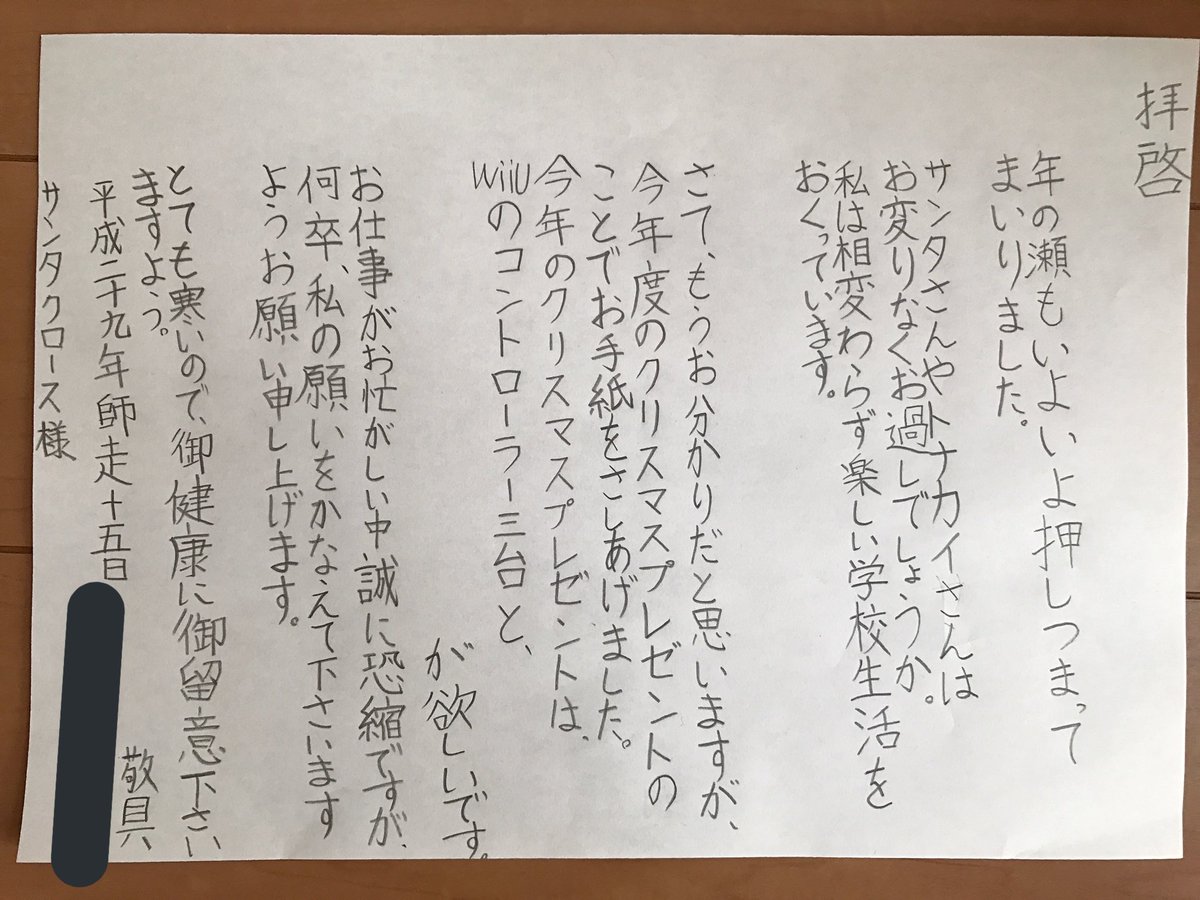 拝啓
年の瀬もいよいよ押しつまって
まいりました。
サンタさんやトナカイさんは
お変りなくお過しでしょうか。
私は相変わらず楽しい学校生活を
おくっています。
さて、もうお分かりだと思いますが、
今年度のクリスマスプレゼントの
ことでお手紙をさしあげました。
今年のクリスマスプレゼントは、
WiiUのコントローラー三台と、
が欲しいです。
お仕事がお忙がしい中誠に恐縮ですが、
何卒、私の願いをかなえて下さいます
ようお願い申し上げます。
とても寒いので、御健康に御留意下さい
ますよう。
敬具
平成二十九年師走十五日
サンタクロース様